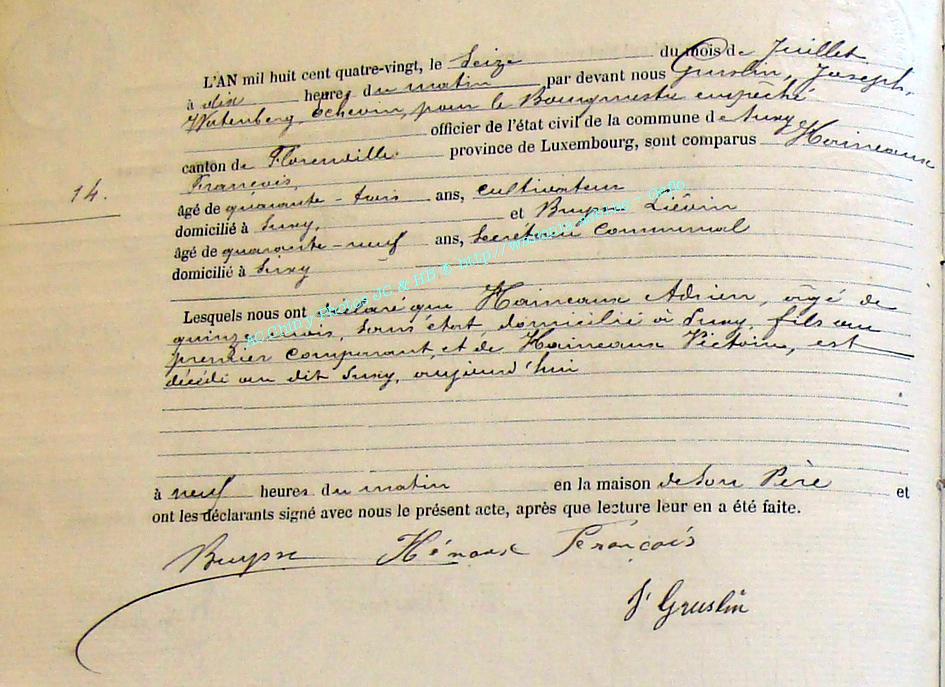 L'AN mil huit cent quatre-vingt, le Seize du mois de Juillet
à dix heures du matin par devant nous Gruslin, Joseph,
Echevin, pour le Bourgmestre empêché
officier de l'état civil de la commune de Suxy
canton de Florenville province de Luxembourg, sont comparus Haineaux
François,
14.
âgé de quarante-trois ans, cultivateur
domicilié à Suxy, et Buysse Liévin
âgé de quarante-neuf ans, Secrétaire Communal
domicilié à Suxy
Lesquels nous ont déclaré que Haineaux Adrien, âgé de
quinze mois, sans état domicilié à Suxy, fils du
premier comparant, et de Haineaux Victoire, est
décédé au dit Suxy, aujourd'hui
à neuf heures du matin en la maison de son Père et
ont les déclarants signé avec nous le présent acte, après que lecture leur en a été faite.
Buysse Hénaux François
J Gruslin